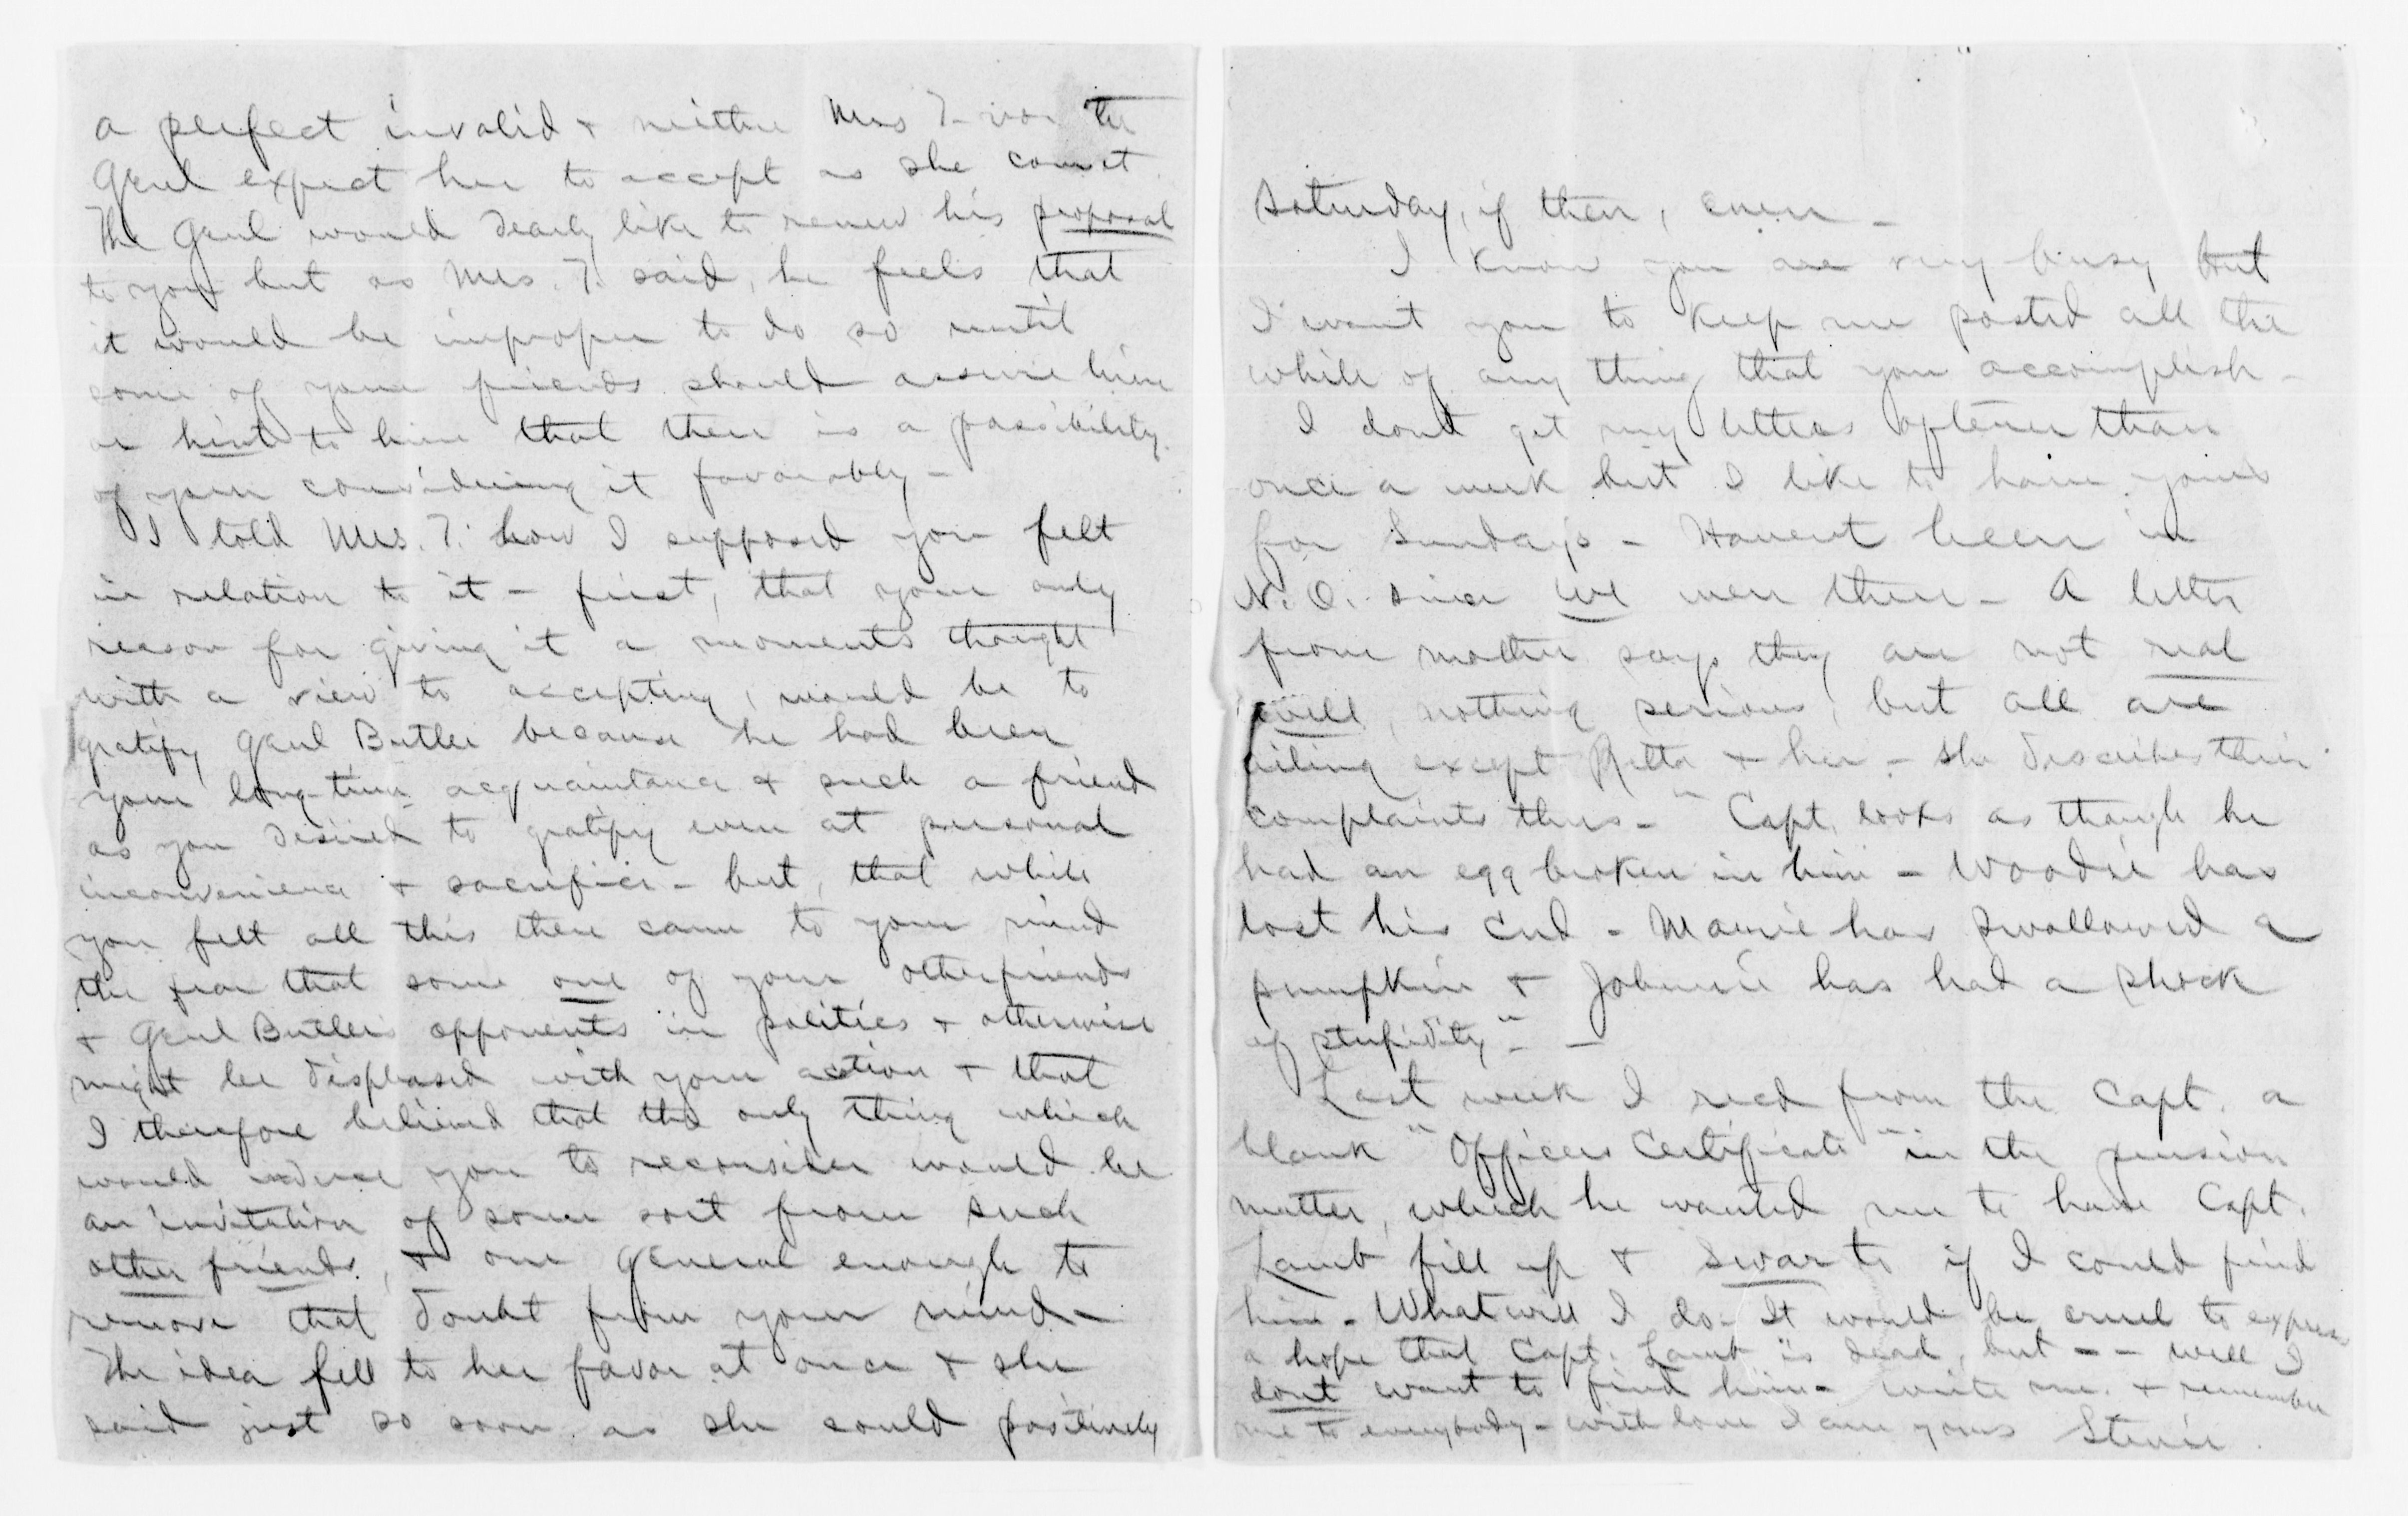 a perfect invalid & neither Mrs T. nor the
Genl expect her to accept as she cannt.
The Genl would dearly like to renew his proposal
to you but as Mrs. T. said, he feels that
it would be improper to do so until
some of your friends should assure him
or hint to him that there is a possibility
of your considering it favorably –
I told Mrs. T. how I supposed you felt
in relation to it – first, that your only
reason for giving it a moments thought
with a view to accepting, would be to
gratify Genl Butler because he had been
your long-time acquaintance & such a friend
as you desired to gratify even at personal
inconvenience & sacrifice – but, that while
you felt all this there came to your mind
the fear that some one of your other friends
& Genl Butler's opponents in politics & otherwise
might be displeased with your action & that
I therefore believed that the only thing which
would induce you to reconsider would be
an invitation of some sort from such
other friends, & one general enough to
remove that doubt from your mind –
The idea fell to her favor at once & she
said just so soon as she could positively
Saturday, if then, even –
I know you are very busy but
I want you to keep me posted all the
while of any thing that you accomplish –
I dont get my letters oftener than
once a week but I like to have yours
for Sundays – Havent been in
N. O. since we were there – A letter
from mother says they are not real
well, nothing serious, but all are
ailing except Retta & her – she describes their
complaints thus – "Capt. looks as though he
had an egg broken in him – Woodie has
lost his cud – Mamie has swallowed a
pumpkin & Johnnie has had a shock
of stupidity" – –
Last week I recd from the Capt. a
blank "Officers Certificate" in the pension
matter, which he wanted me to have Capt.
Lamb fill up & swar to if I could find
him – What will I do – It would be cruel to express
a hope that Capt. Lamb is dead, but – – well I
dont want to find him – write me & remember
me to everybody – with love I am yours Stevie